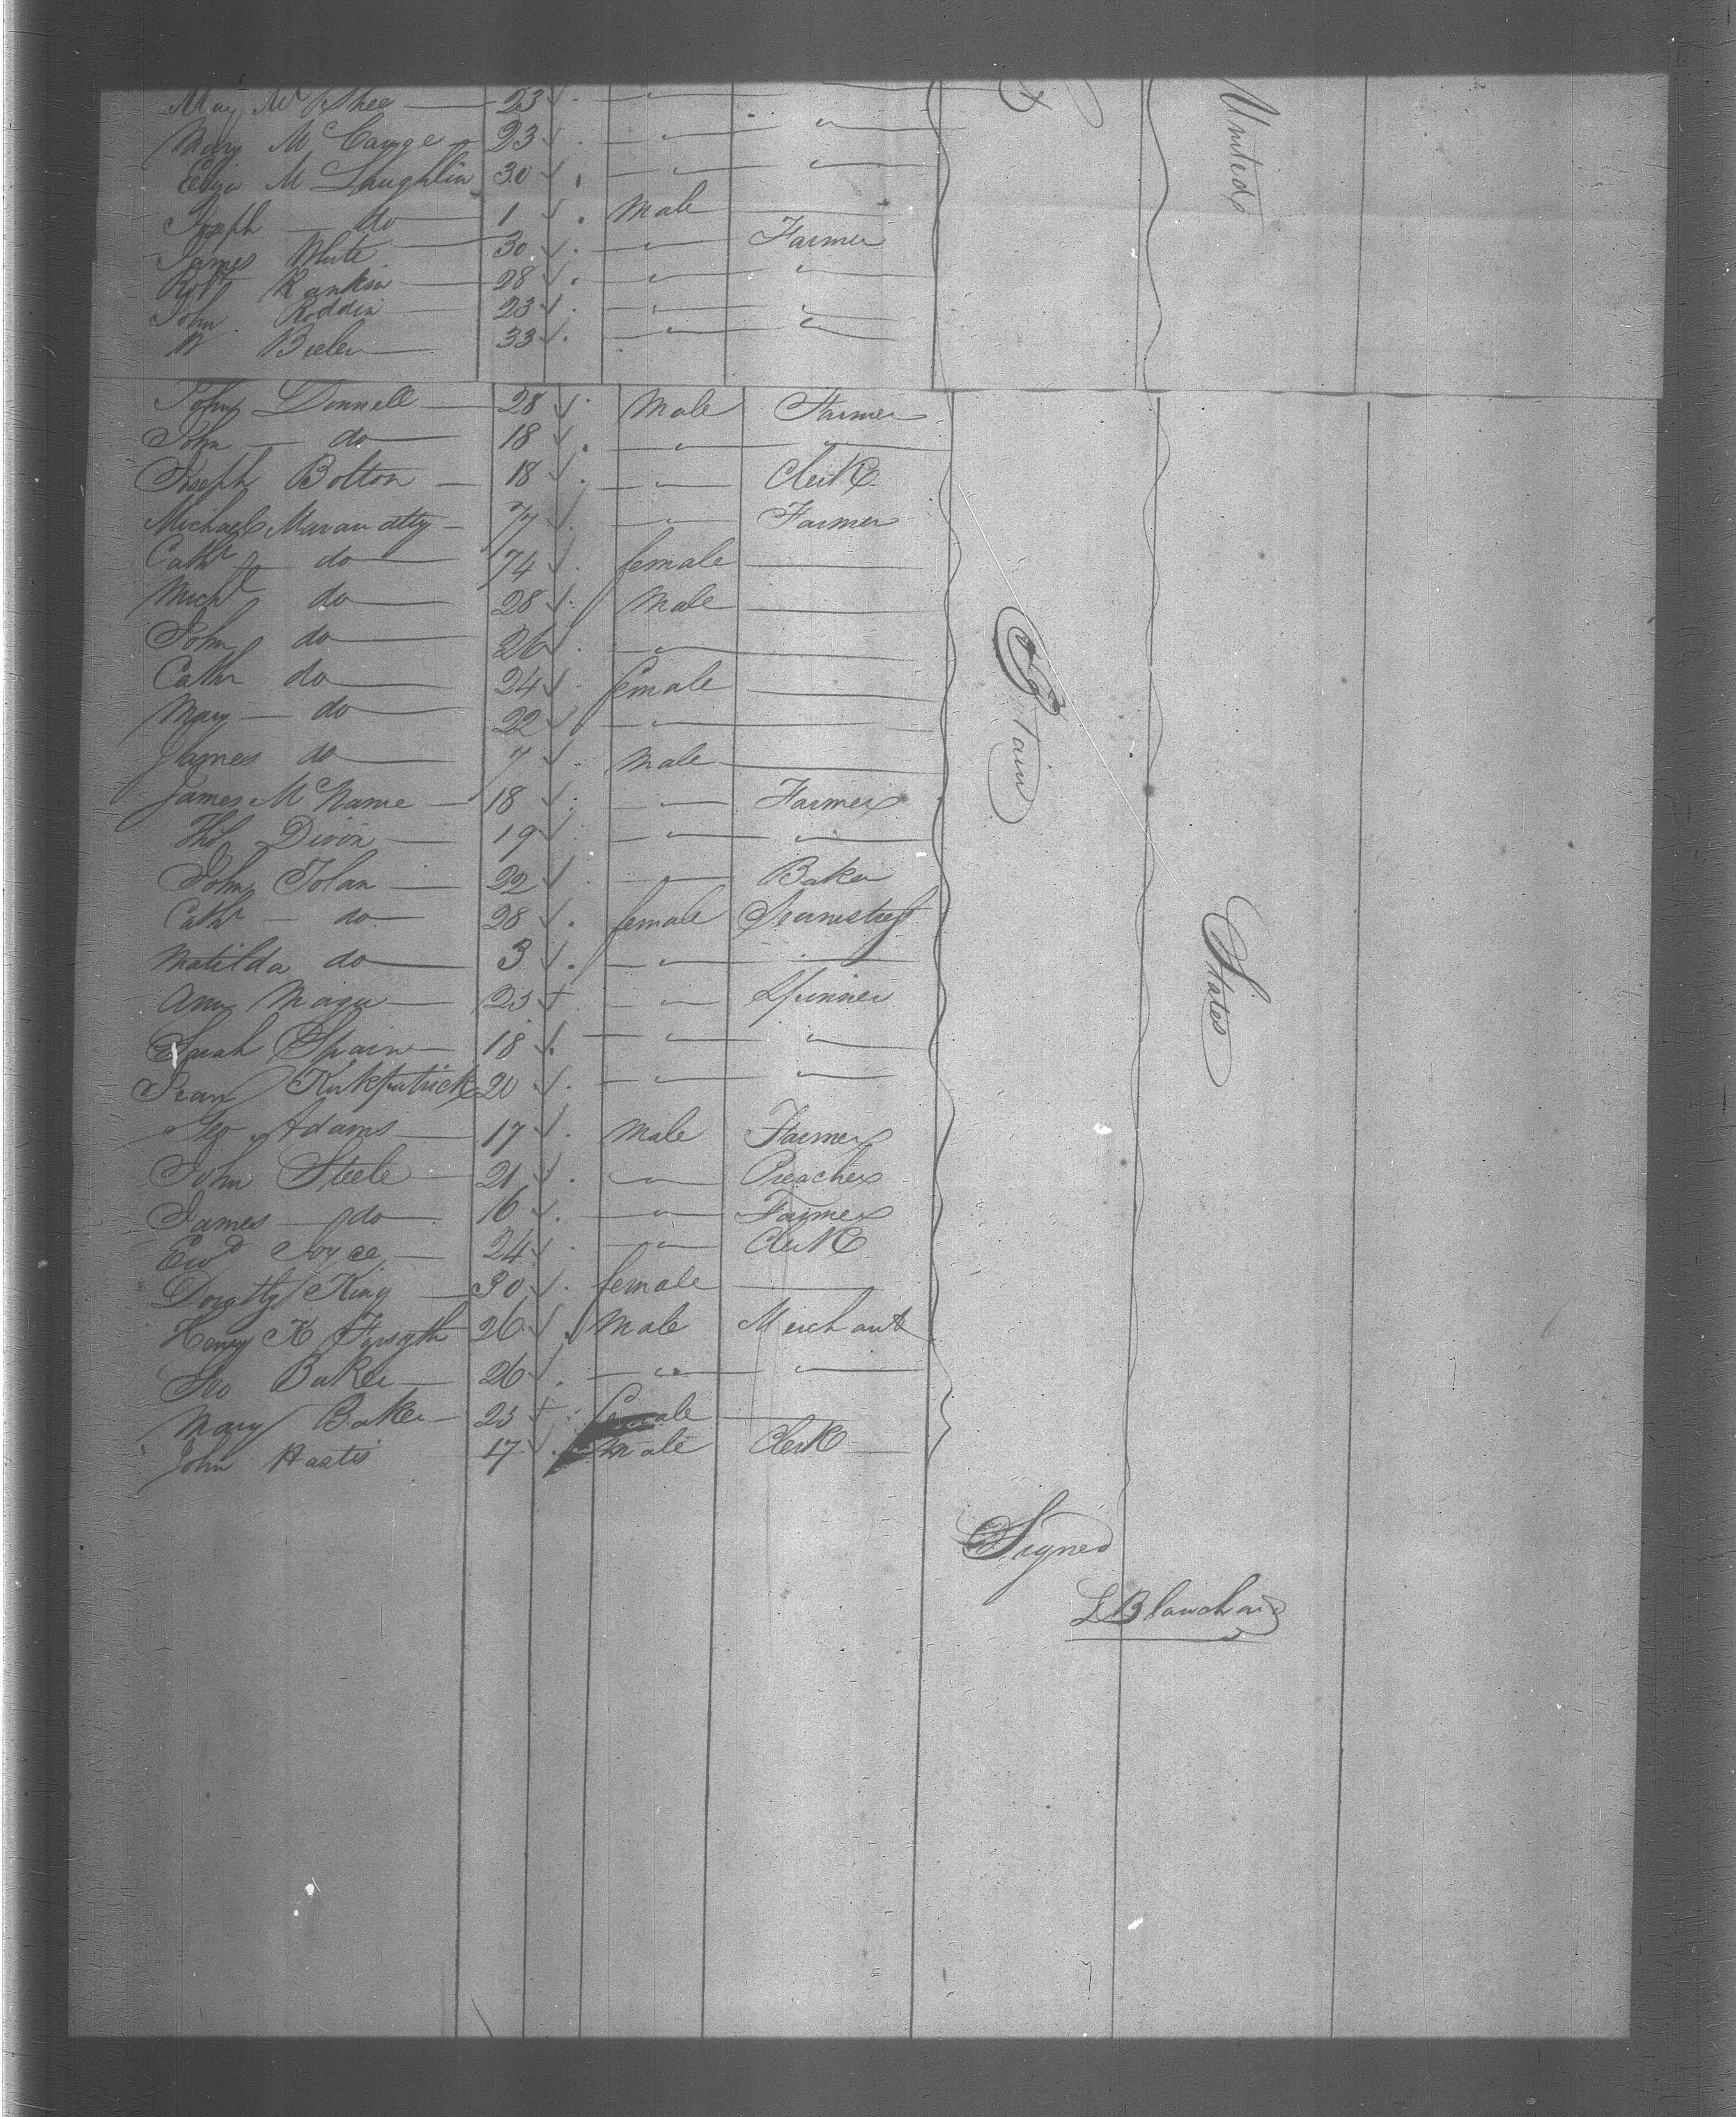 Mary McShee — 23 " "
Mary McCauge — 23 " "
Eliza McLaughlin 30 " "
Joseph — do — 1 Male —
James White — 30 " Farmer
Robt Rankin — 28 " "
John Roddin — 23 " "
W Beeler — 33 " "
John Donnell — 28 Male Farmer
John — do — 18 " "
Joseph Bolton — 18 " Clerk
Michael Maran atty — 77 " Farmer
Cathr — do — 74 female —
Michl do — 28 Male —
John do — 26 " —
Cathr do — 24 female —
Mary — do — 22 " —
James do — 7 Male —
James McName — 18 " Farmer
Tho Divin — 19 " "
John Tolan — 22 " Baker
Cathr — do — 28 female Seamstress
Matilda do — 3 " —
Ann Magu — 25 " Spinner
Sarah Spain — 18 " "
Jean Kirkpatrick 20 " "
Geo Adams — 17 Male Farmer
John Steele — 21 " Preacher
James — do — 16 " Farmer
Ewd Joyce — 24 " Clerk
Doratty King — 30 female —
Henry K Forsyth 26 Male Merchant
Geo Baker — 26 " "
Mary Baker — 25 female —
John Hastis 17 Male Clerk —
United
States
Signed
L Blanchard